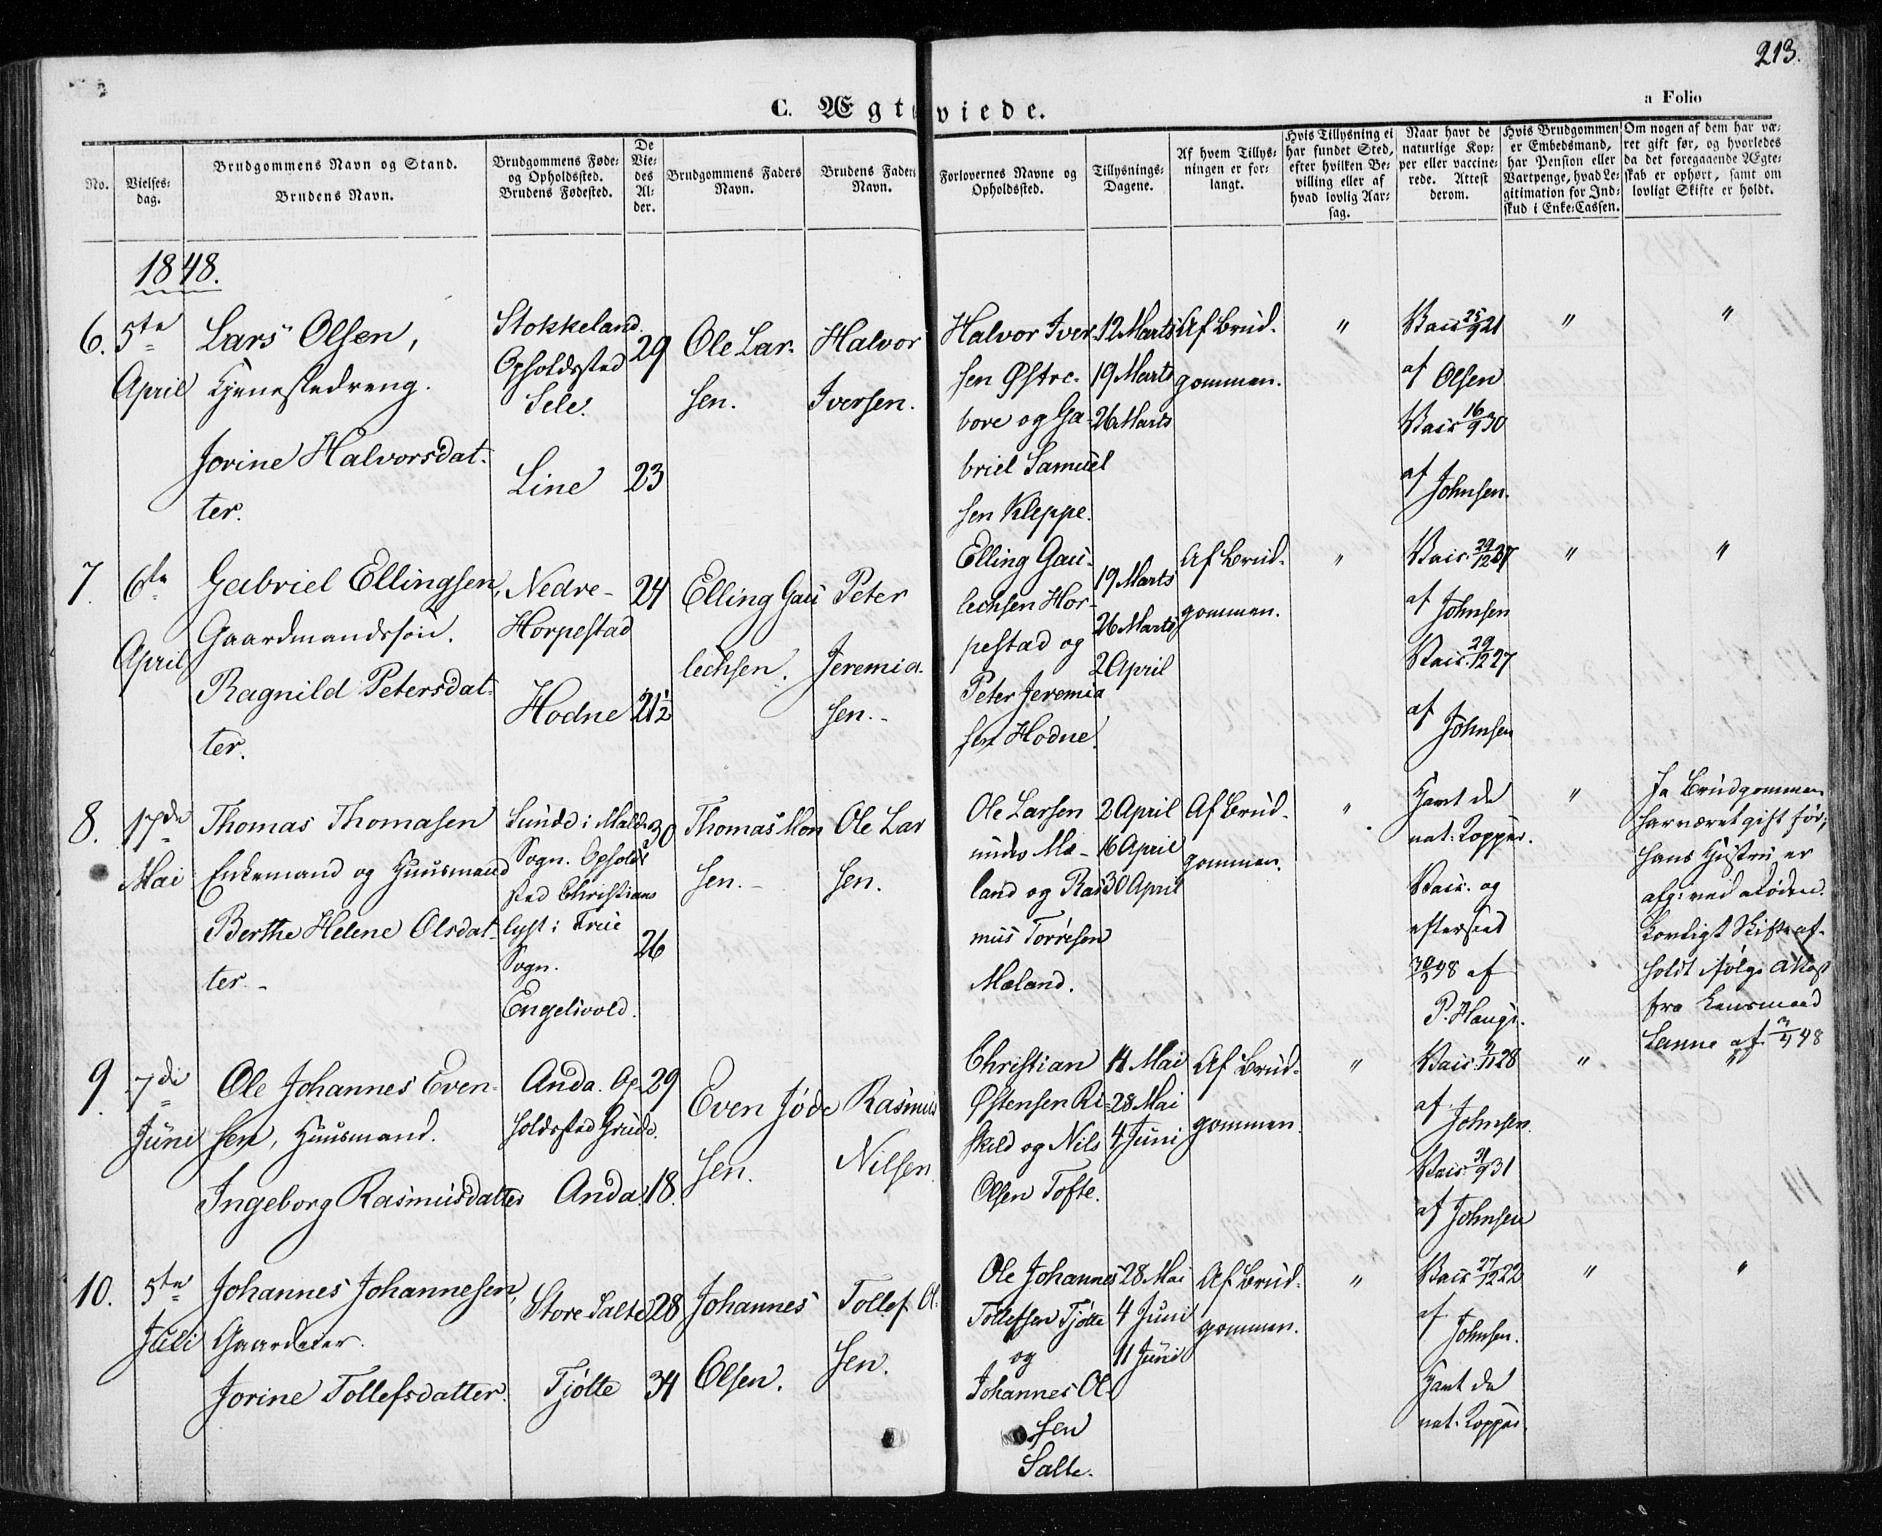 213.
a Folio
C. Ægteviede.
No.
Vielses-
dag.
Brudgommens Navn og Stand.
Brudens Navn.
Brudgommens Føde-
og Opholdssted.
Brudens Fødested.
De
Vie-
des
Al-
der.
Brudgommens Faders
Navn.
Brudens Faders
Navn.
Forlovernes Navne og
Opholdssted.
Tillysnings-
Dagene.
Af hvem Tillys-
ningen er for-
langt.
Hvis Tillysning ei
har fundet Sted,
efter hvilken Be-
villing eller af
hvad lovlig Aar-
sag.
Naar havt de
naturlige Kop-
per eller vaccine-
rede. Attest
derom.
Hvis Brudgommen
er Embedsmand,
har Pension eller
Vartpenge, hvad Le-
gitimation for Ind-
skud i Enke-Cassen.
Om nogen af dem har væ-
ret gift før, og hvorledes
da det foregaaende Ægte-
skab er ophørt, samt om
lovligt Skifte er holdt.
1848.
6.
5te
April
Lars Olsen,
Tjenestedreng.
Jorine Halvorsdat-
ter.
Stokkeland.
Opholdssted
Sele.
Line
29
23
Ole Lar-
sen.
Halvor
Iversen.
Halvor Iver-
sen Østre-
bore og Ga-
briel Samuel
sen Kleppe.
12 Marts
19 Marts
26 Marts
Af Brud-
gommen.
"
Vacc 25/9 21
af Olsen
Vacc 16/9 30
af Johnsen.
"
"
7.
6te
April
Gabriel Ellingsen,
Gaardmandssøn.
Ragnild Petersdat-
ter.
Nedre-
Horpestad
Hodne
24
21½
Elling Gau
lechsen.
Peter
Jeremia-
sen.-
Elling Gau-
lechsen Hor-
pestad og
Peter Jeremia
sen Hodne.
19 Marts
26 Marts
2 April
Af Brud-
gommen.
"
Vacc. 29/12 37
af Johnsen
Vacc. 29/12 27
af Johnsen
"
"
8.
17de
Mai
Thomas Thomasen
Enkemand og Huusmand
Berthe Helene Olsdat-
ter.-
Sunde i Malde
Sogn. Opholds
sted Christians
lyst i Frue
Sogn.
Engelsvold.
30
26
Thomas Mon
sen.-
Ole Lar
sen.
Ole Larsen
undre Mæ-
land og Ras
mus Torresen
Mæland.
2 April
16 April
30 April
Af Brud-
gommen.
"
Havt de
nat. Kopper.
Vacc. og
efterseet
af
P. Hauge.
"
Ja Brudgommen
har været gift før,
hans Hustru er
afg. ved Døden.
Lovligt Skifte af-
holdt ifølge Attest
fra Lensmand
Lanne af 3/4 48
9.
7de
Juni
Ole Johannes Even-
sen, Huusmand.
Ingeborg Rasmusdatter
Anda. Op-
holdssted Grude.
Anda.
29
18.
Even Jøde
sen.
Rasmus
Nilsen.
Christian
Østensen Ri-
skild og Nils
Olsen Tofte.
14 Mai
28 Mai
4 Juni
Af Brud-
gommen.
"
Vacc. 28
af Johnsen.
Vacc. 31
af Johnsen
"
"
10.
5te
Juli
Johannes Johannesen,
Gaardeier.
Jorine Tollefsdatter.
Store Salte
Tjøtte
28
34
Johannes
Olsen.
Tollef Ol-
sen.
Ole Johannes
Tollefsen Tjøtte
og
Johannes Ol-
sen
Salte.
28 Mai
4 Juni
11 Juni
Af Brud-
gommen.
"
Vacc 27/12 22
af Johnsen.
Havt de
nat. Kopper.
"
"